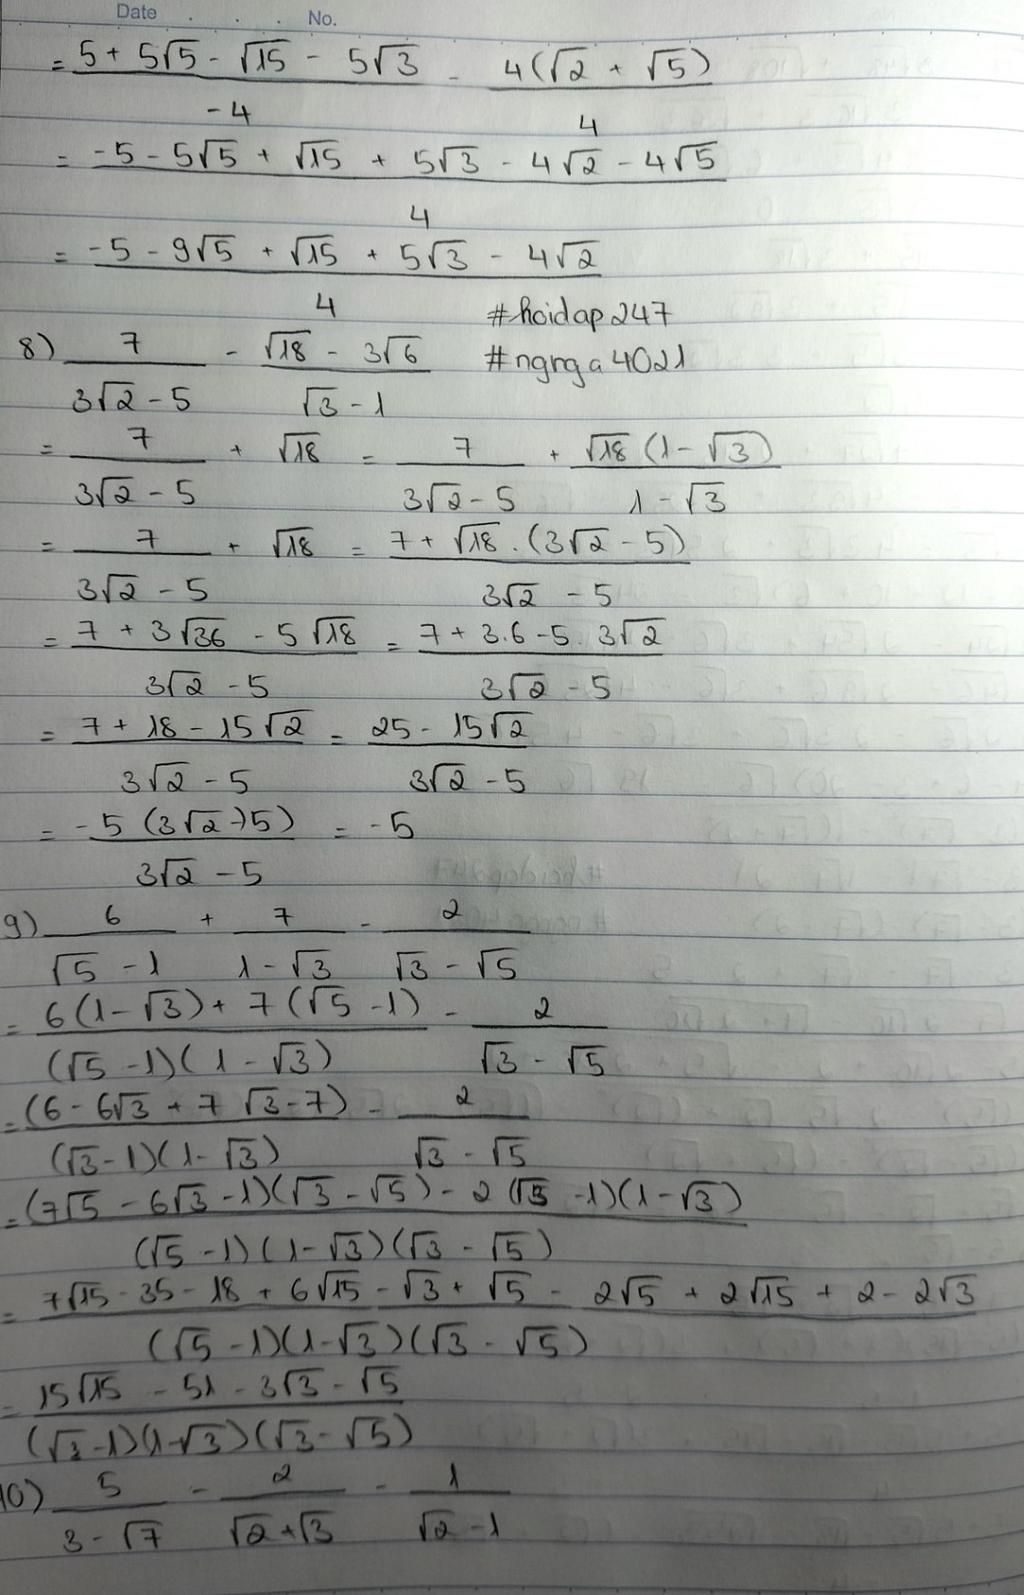 Date . . . No.
= (5 + 5√5 - √15 - 5√3)/(-4) - (4(√2 + √5))/4
= (-5 - 5√5 + √15 + 5√3 - 4√2 - 4√5)/4
= (-5 - 9√5 + √15 + 5√3 - 4√2)/4
#hoidap247
8) 7/(3√2 - 5) - (√18 - 3√6)/(√3 - 1)
#ngnga4021
= 7/(3√2 - 5) + √18 = 7/(3√2 - 5) + (√18 (1 - √3))/(1 - √3)
= 7/(3√2 - 5) + √18 = (7 + √18 . (3√2 - 5))/(3√2 - 5)
= (7 + 3√36 - 5√18)/(3√2 - 5) = (7 + 3.6 - 5. 3√2)/(3√2 - 5)
= (7 + 18 - 15√2)/(3√2 - 5) = (25 - 15√2)/(3√2 - 5)
= (-5 (3√2 - 5))/(3√2 - 5) = -5
9) 6/(√5 - 1) + 7/(1 - √3) - 2/(√3 - √5)
= (6(1 - √3) + 7(√5 - 1))/((√5 - 1)(1 - √3)) - 2/(√3 - √5)
= (6 - 6√3 + 7√3 - 7)/((√3 - 1)(1 - √3)) - 2/(√3 - √5)
= ((7√5 - 6√3 - 1)(√3 - √5) - 2(√5 - 1)(1 - √3))/((√5 - 1)(1 - √3)(√3 - √5))
= (7√15 - 35 - 18 + 6√15 - √3 + √5 - 2√5 + 2√15 + 2 - 2√3)/((√5 - 1)(1 - √3)(√3 - √5))
= (15√15 - 51 - 3√3 - √5)/((√3 - 1)(1 - √3)(√3 - √5))
10) 5/(3 - √7) - 2/(√2 + √3) - 1/(√2 - 1)